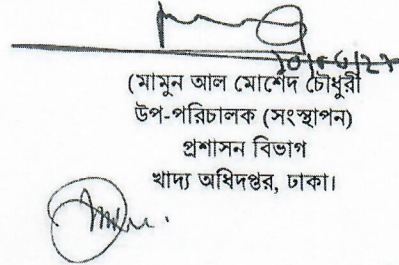 (মামুন আল মোর্শেদ চৌধুরী
উপ-পরিচালক (সংস্থাপন)
প্রশাসন বিভাগ
খাদ্য অধিদপ্তর, ঢাকা।